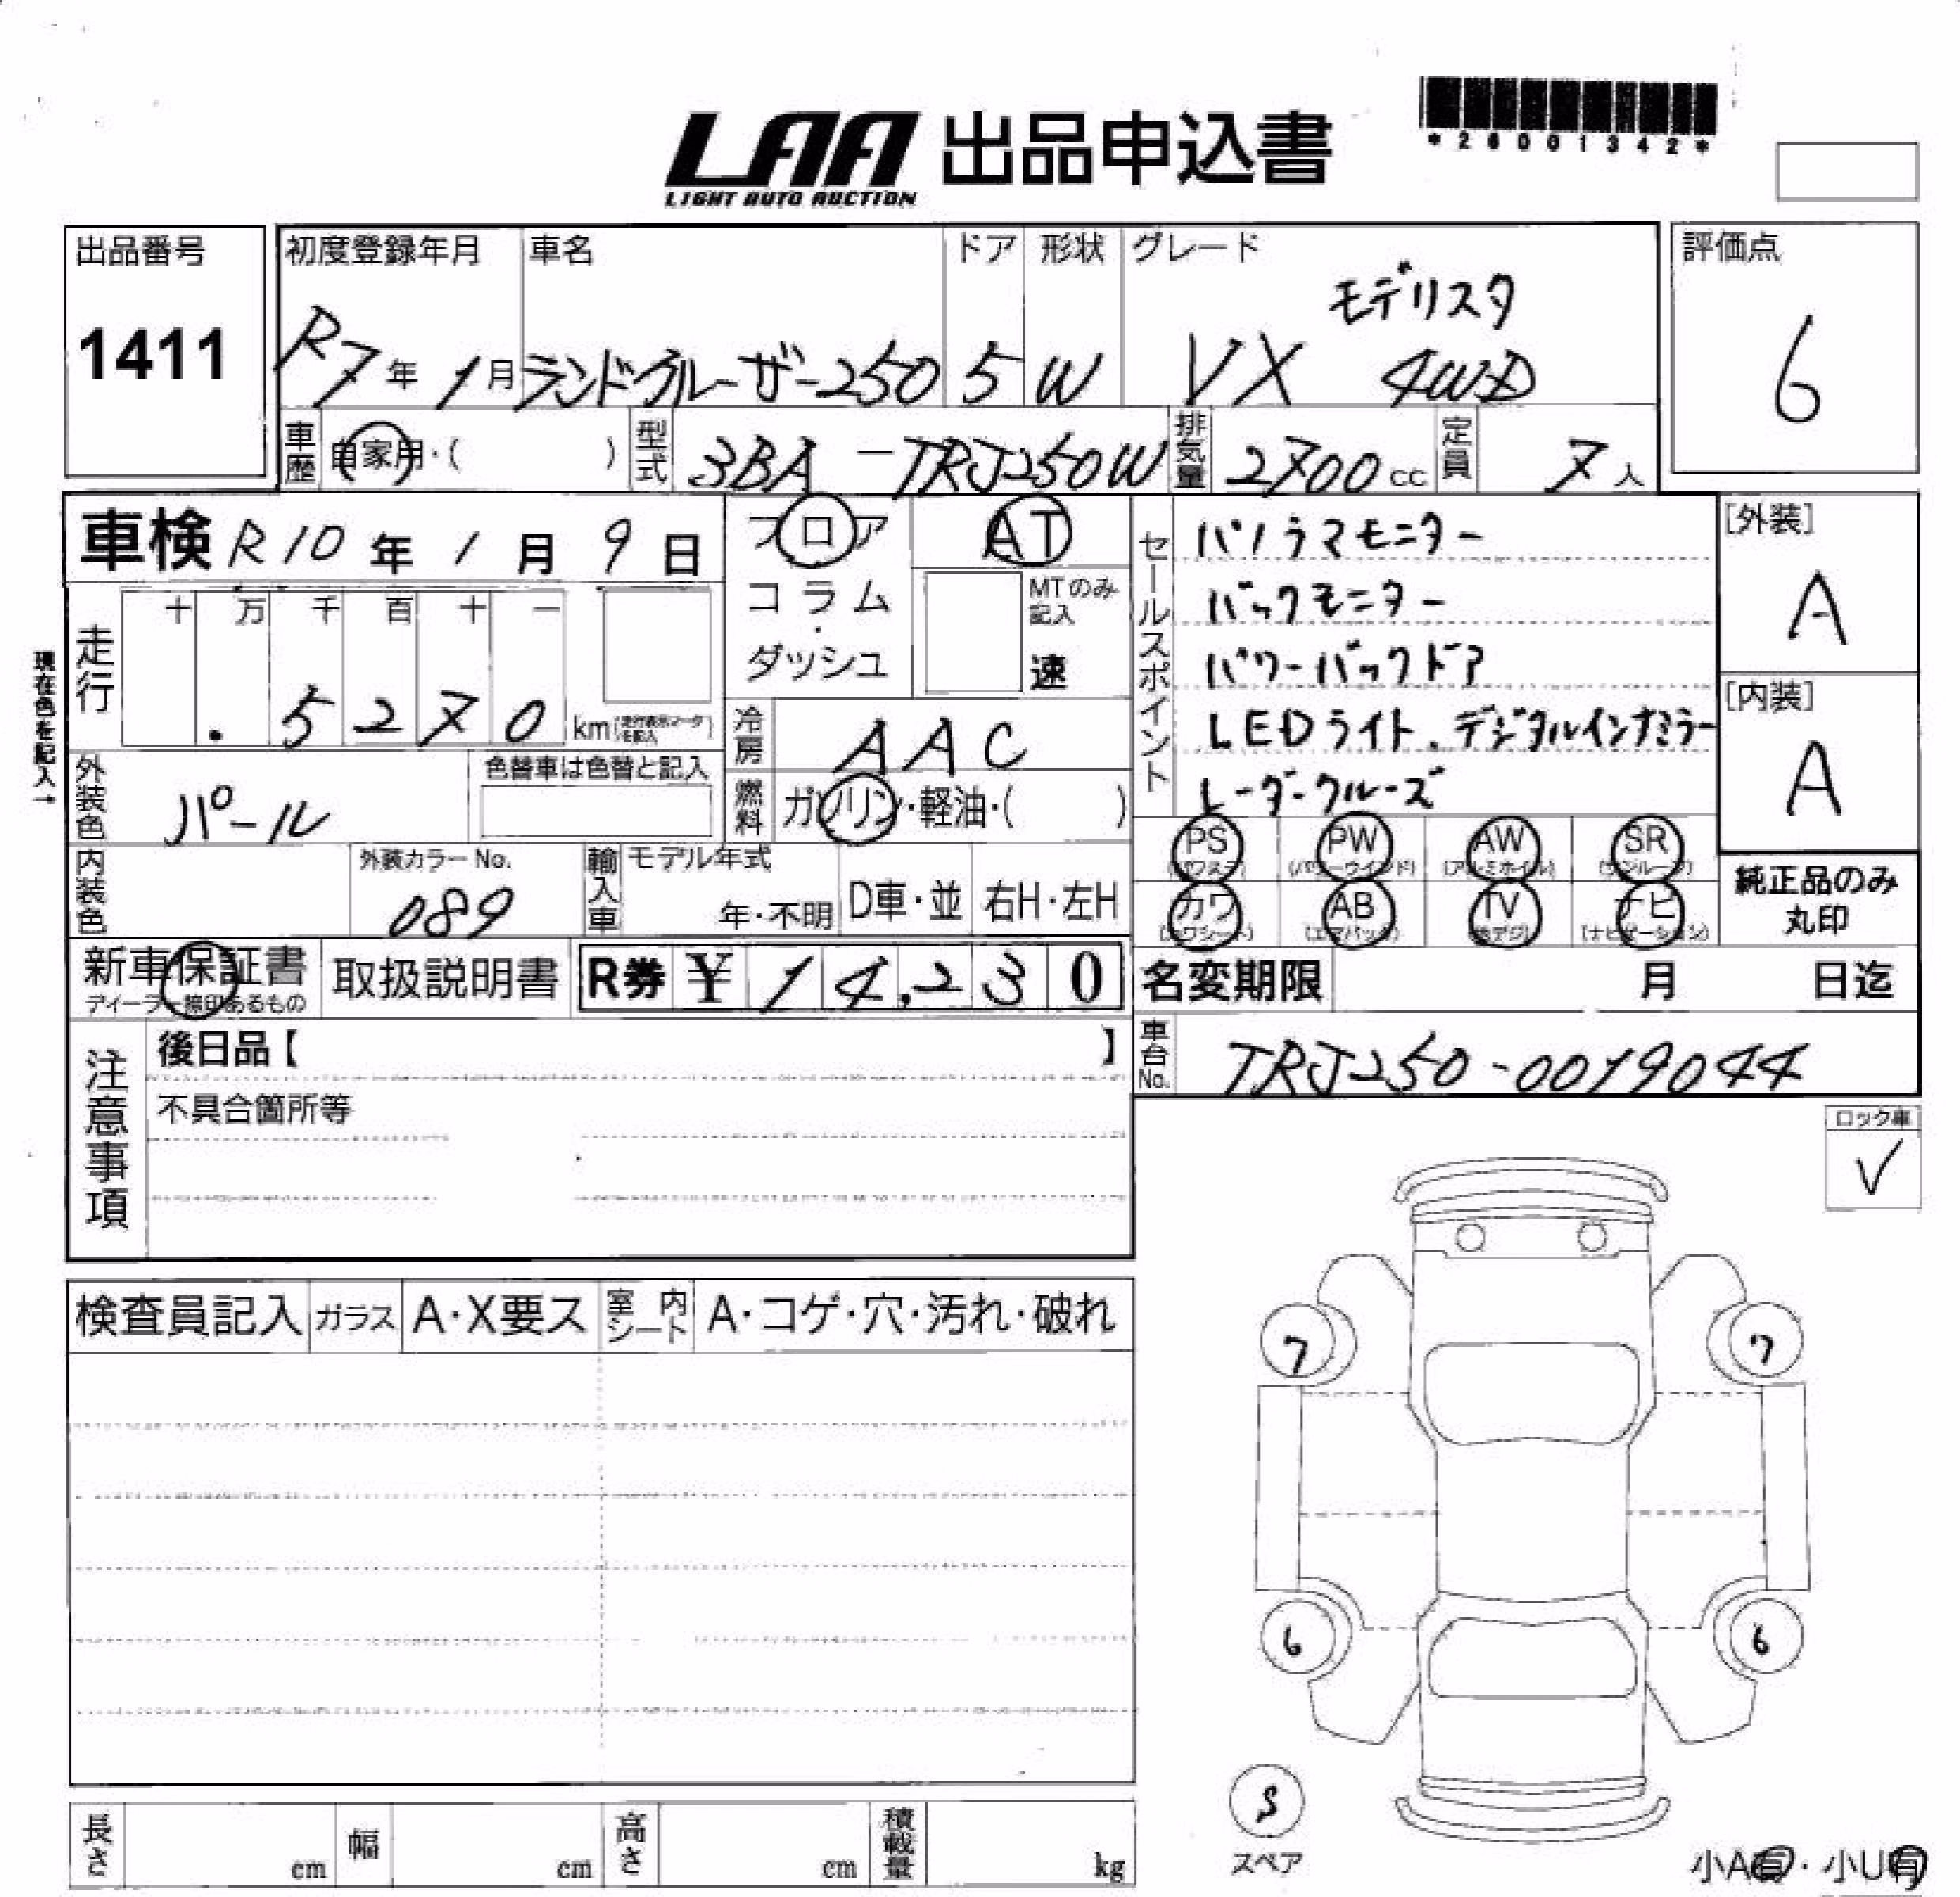 LAA 出品申込書
LIGHT AUTO AUCTION
*26001342*
出品番号
1411
初度登録年月 車名 ドア 形状 グレード
モデリスタ
R7年 1月 ランドクルーザー250 5 W VX 4WD
評価点
6
車歴 自家用・( ) 型式 3BA-TRJ250W 排気量 2700cc 定員 7人
車検 R10年 1月 9日
フロア AT
コラム・ダッシュ
MTのみ記入
速
セールスポイント
パノラマモニター
バックモニター
パワーバックドア
LEDライト、デジタルインナミラー
レーダークルーズ
[外装]
A
[内装]
A
現在色を記入→
走行 十 万 千 百 十 一
.5270 km (走行表示マークを記入)
冷房 AAC
燃料 ガソリン・軽油・( )
外装色 パール
色替車は色替と記入
内装色
外装カラーNo.
089
輸入車 モデル年式
年・不明 D車・並 右H・左H
PS (パワステ) PW (パワーウインド) AW (アルミホイル) SR (サンルーフ)
カワ (カワシート) AB (エアバック) TV (地デジ) ナビ (ナビゲーション)
純正品のみ
丸印
新車保証書
ディーラー捺印あるもの
取扱説明書 R券 ¥14,230
名変期限 月 日迄
車台No. TRJ250-0019044
注意事項
後日品【 】
不具合箇所等
ロック車
✓
検査員記入 ガラス A・X要ス 室内シート A・コゲ・穴・汚れ・破れ
7 7
6 6
S
スペア
長さ cm 幅 cm 高さ cm 積載量 kg
小A有・小U有